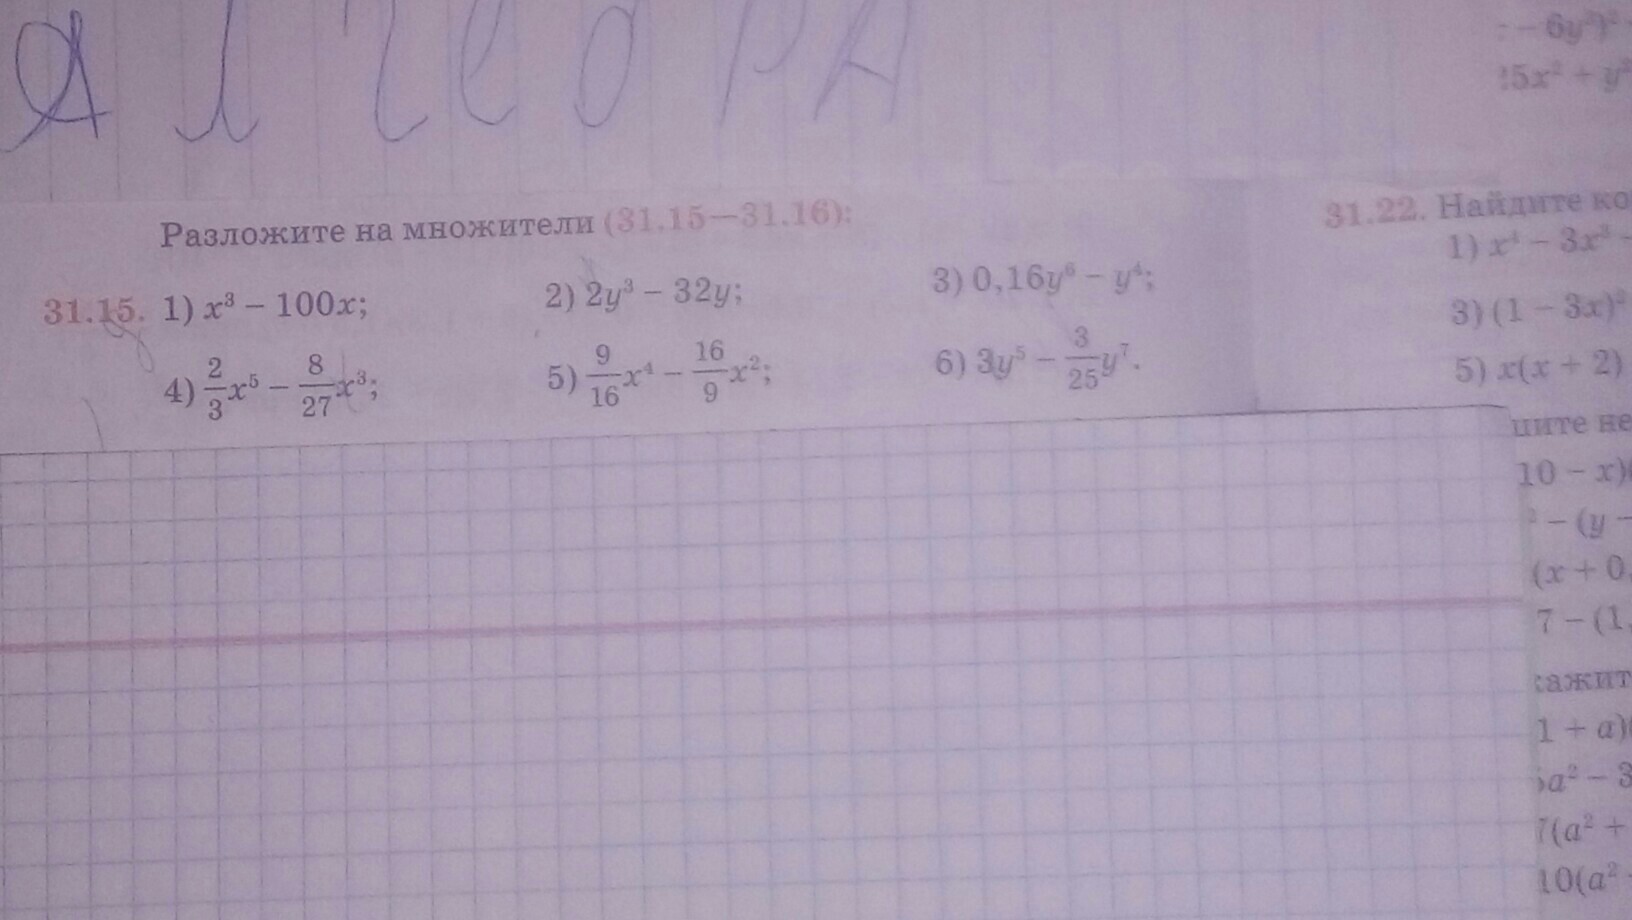 АЛГЕБРА
Разложите на множители (31.15—31.16):
31.15. 1) x³ – 100x; 2) 2y³ – 32y; 3) 0,16y⁶ – y⁴;
4) 2/3 x⁵ – 8/27 x³; 5) 9/16 x⁴ – 16/9 x²; 6) 3y⁵ – 3/25 y⁷.
– 6y²)²
5x² + y²
31.22. Найдите ко
1) x⁴ – 3x³ –
3) (1 – 3x)²
5) x(x + 2)
ите не
10 – x)(
² – (y –
(x + 0,
7 – (1,
ажит
1 + a)(
a² – 3
7(a² +
10(a²